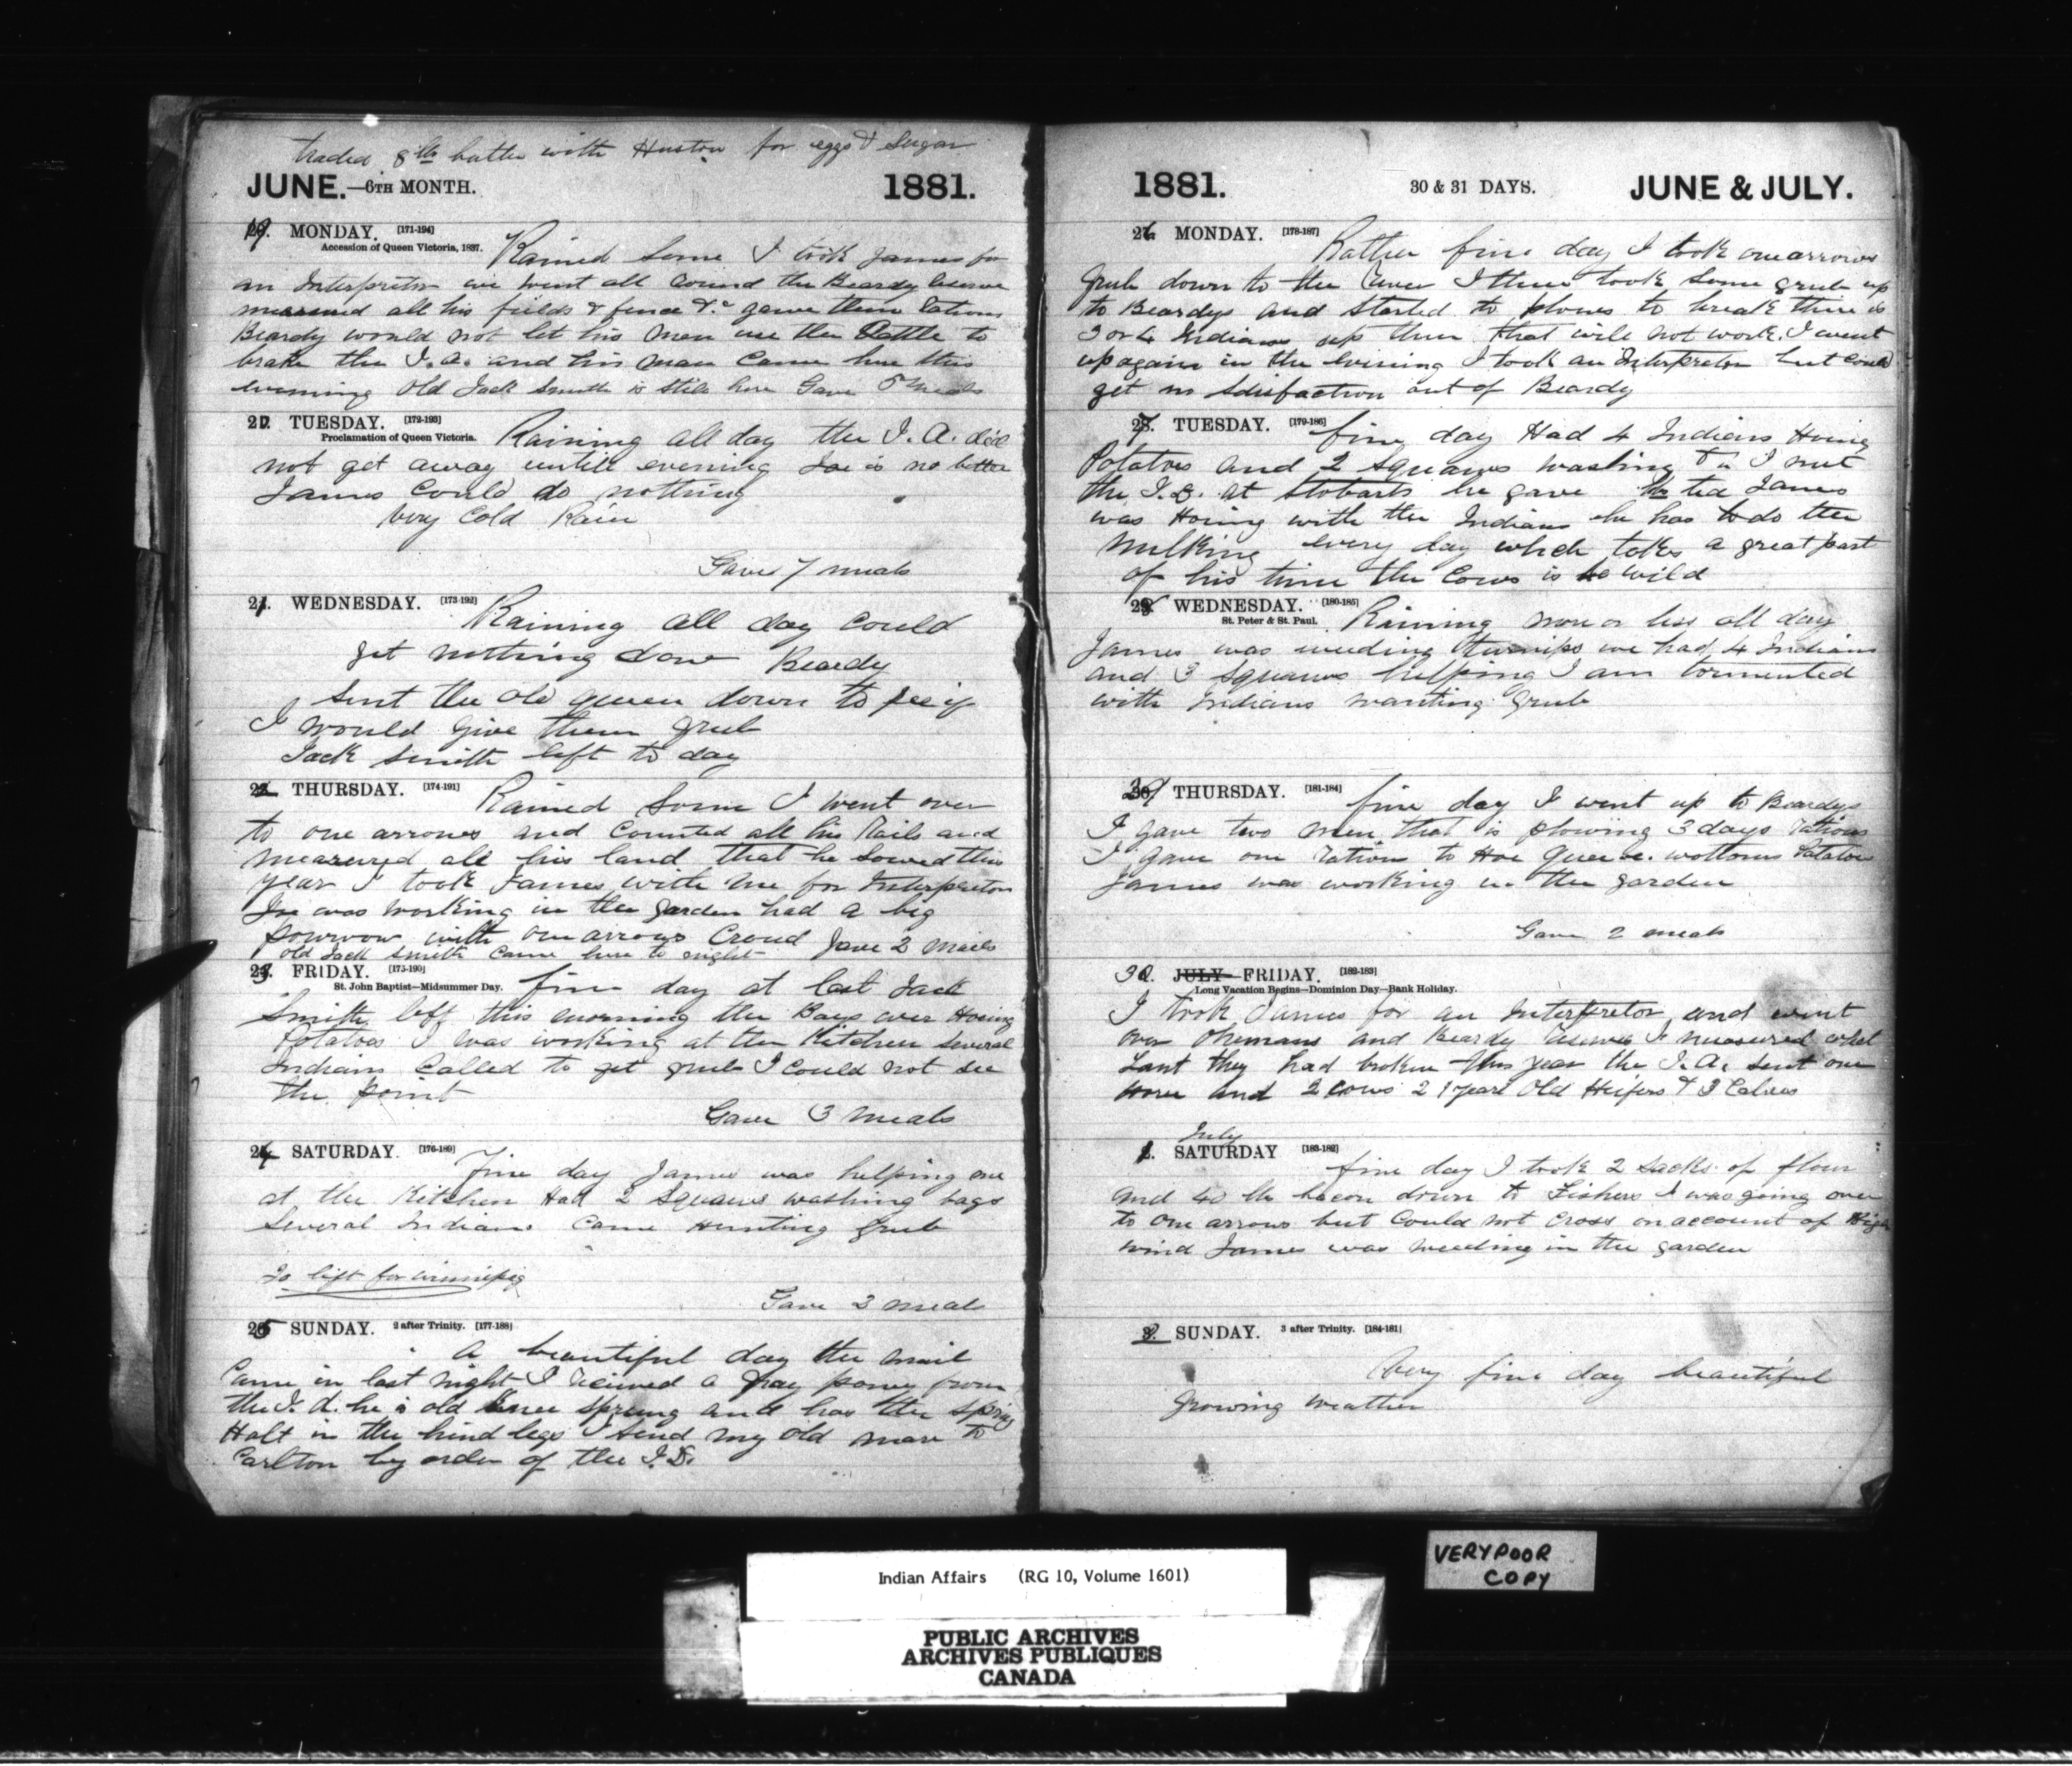 traded 8 lb butter with Huston for eggs & Sugar
JUNE.—6TH MONTH. 1881.
19. MONDAY. [171-194]
Accession of Queen Victoria, 1837.
Rained Some I took James for
an Interpretor we went all round the Beardy Reserve
measured all his fields & fence &c gave them rations
Beardy would not let his men use the Cattle to
brake the I. A. and his man Came here this
evening Old Jack Smith is still here Gave 5 meals
20. TUESDAY. [172-193]
Proclamation of Queen Victoria.
Raining all day the I. A. did
not get away untill evening Joe is no better
James Could do nothing
Very Cold Rain
Gave 7 meals
21. WEDNESDAY. [173-192]
Raining all day Could
get nothing done Beardy
Sent the old queen down to see if
I would give them grub
Jack Smith left to day
22. THURSDAY. [174-191]
Rained Some I went over
to one arrows and Counted all his Rails and
measured all his land that he Sowed this
year I took James with me for Interpretor
Joe was working in the garden had a big
powwow with one arrows Croud gave 2 meals
old Jack Smith Came here to night
23. FRIDAY. [175-190]
St. John Baptist—Midsummer Day.
fine day at last Jack
Smith left this morning the Boys were Hoeing
Potatoes I was working at the Kitchen Several
Indians Called to get grub I Could not see
the point
Gave 3 meals
24. SATURDAY. [176-189]
Fine day James was helping me
at the Kitchen Had 2 Squaws washing bags
Several Indians Came Hunting grub
Jo left for Winnipeg
Gave 3 meals
25 SUNDAY. 2 after Trinity. [177-188]
A beautiful day the mail
Came in last night I recived a gray poney from
the I. A. he is old knee sprung and has the spring
Halt in the hind legs I send my old mare to
Carlton by order of the I. D.
1881. 30 & 31 DAYS. JUNE & JULY.
26. MONDAY. [178-187]
Rather fine day I took one arrows
grub down to the River I then took some grub up
to Beardys and Started to plows to break there is
3 or 4 Indians up there that will not work. I went
up again in the evening I took an Interpretor but Could
get no Satisfaction out of Beardy
27. TUESDAY. [179-186]
fine day Had 4 Indians Hoeing
Potatoes and 2 Squaws washing I met
the I. A. at Stobarts he gave ted James
was Hoeing with the Indians he has to do the
milking every day which takes a great part
of his time the Cows is so wild
28. WEDNESDAY. [180-185]
St. Peter & St. Paul.
Raining more or less all day
James was weeding turnips we had 4 Indians
and 3 Squaws helping I am tormented
with Indians wanting grub
29 THURSDAY. [181-184]
fine day I went up to Beardys
I gave two men that is plowing 3 days rations
I gave one ration to Hoe Potatoes
James was working in the garden
Gave 2 meals
30. JULY FRIDAY. [182-183]
Long Vacation Begins—Dominion Day—Bank Holiday.
I took James for an Interpretor and went
over Okemans and Beardy Reserves I measured what
Lant they had broken this year the I. A. sent one
Horse and 2 cows 2 1 year Old Heifers & 3 Calves
July
1. SATURDAY [183-182]
fine day I took 2 Sacks of flour
and 40 lb bacon down to Fishers I was going over
to One arrows but Could not Cross on account of High
wind James was weeding in the garden
2. SUNDAY. 3 after Trinity. [184-181]
Very fine day beautiful
growing weather
VERY POOR
COPY
Indian Affairs (RG 10, Volume 1601)
PUBLIC ARCHIVES
ARCHIVES PUBLIQUES
CANADA